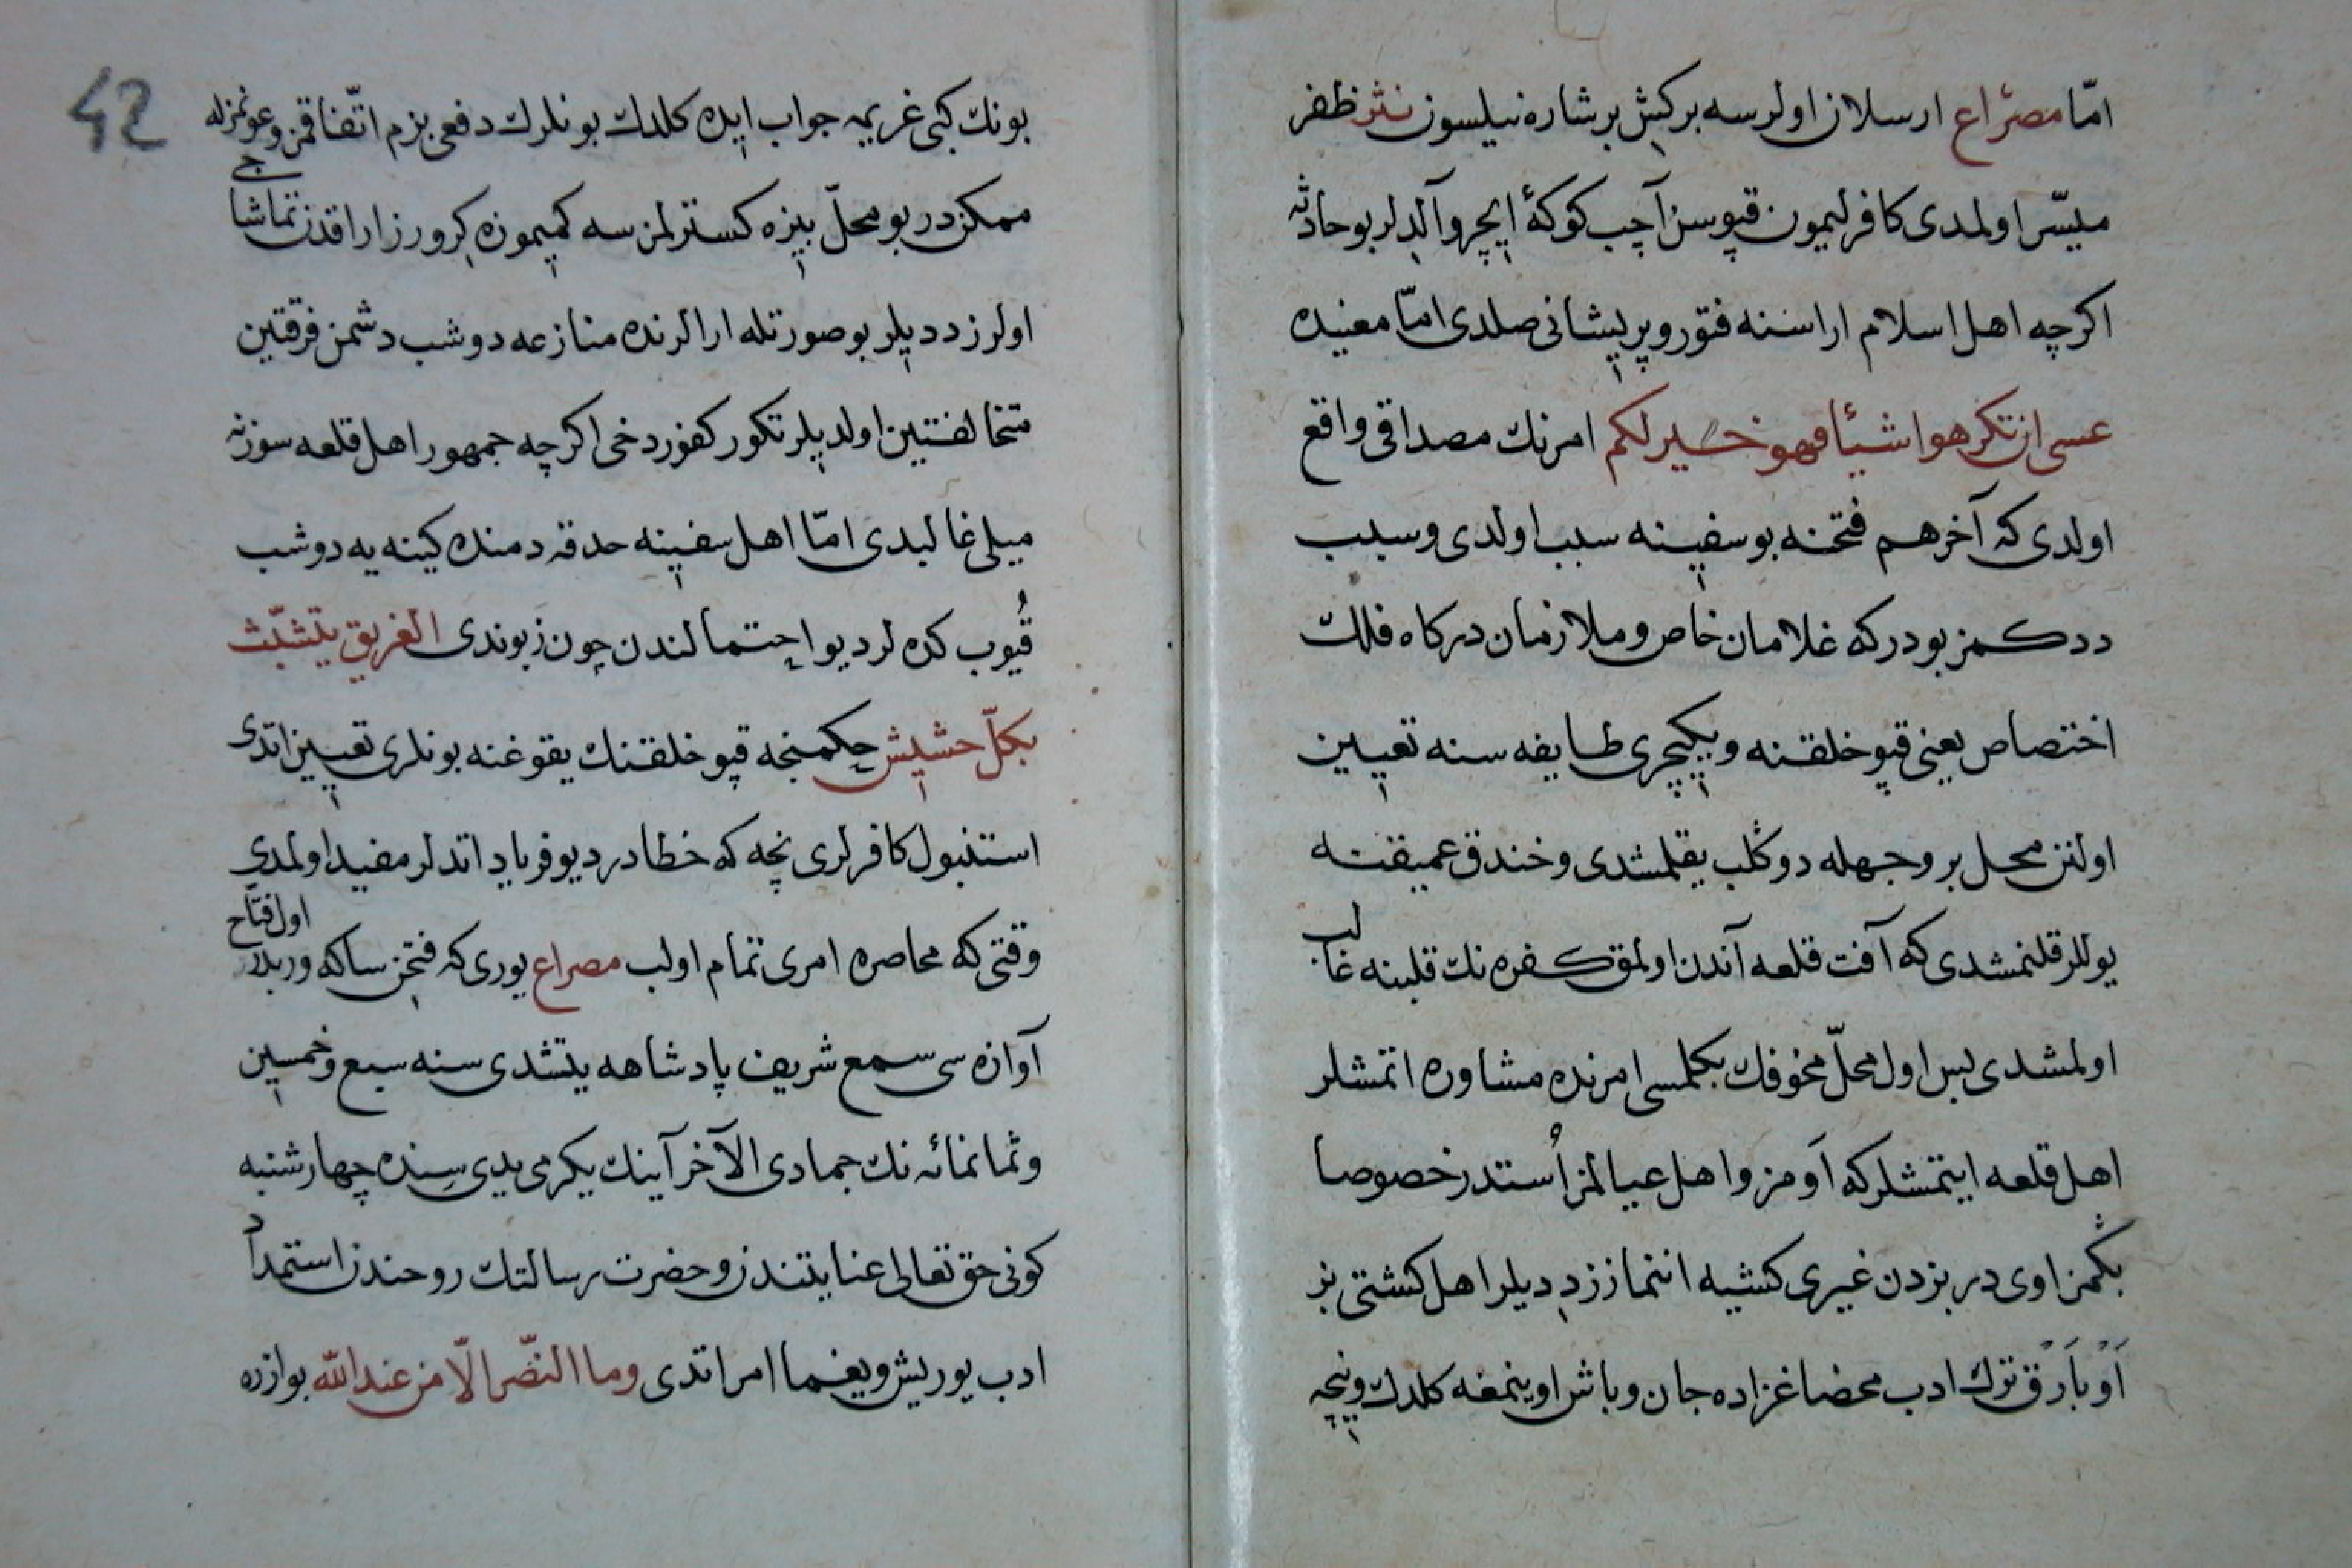 امّا مصراع ارسلان اولرسه بركش برشاره نيلسون نثر ظفر
ميسّر اولمدى كافر ليمون قپوسن آچب كوكۀ ايچرو آلدلر بو حادثه
اكرچه اهل اسلام اراسنه فتور و پريشانى صلدى امّا معنيده
عسى ان تكرهوا شيئا فهو خير لكم امرنك مصداقى واقع
اولدى كه آخر هم فتحنه بو سفينه سبب اولدى و سبب
ددكمز بودر كه غلامان خاص و ملازمان دركاه فلك
اختصاص يعنى قپو خلقنه و يكيچرى طايفه سنه تعيين
اولنن محل بر وجهله دوكلب يقلمشدى و خندق عميقته
يوللر قلنمشدى كه آفت قلعه آندن اولمق كفره نك قلبنه غالب
اولمشدى پس اول محلّ مخوفك بكلمسى امرنده مشاوره اتمشلر
اهل قلعه ايتمشلر كه اومز و اهل عيالمز استندر خصوصا
بكمز اوى در بزدن غيرى كشيه اينماززد ديلر اهل كشتى بز
او بارق ترك ادب محضا غزاده جان و باش اوينمغه كلدك و نيچه
42
بونك كبى غريمه جواب ايده كلدك بونلرك دفعى بزم اتّفاقمز و عونمزله
ممكن در بو محلّ بيزه كسترلمز سه كميموزه كرورز اراقدن تماشاجى
اولرز دديلر بو صورتله ارالرنده منازعه دوشب دشمن فرقتين
متخالفتين اولديلر تكور كفور دخى اكرچه جمهور اهل قلعه سوزنه
ميلى غالبدى امّا اهل سفينه حدقه دمنده كينه يه دوشب
قيوب كده لر ديو احتمالندن چون زبوندى الغريق يتشبّث
بكلّ حشيش حكمنجه قپو خلقنك يقوغنه بونلرى تعيين اتدى
استنبول كافرلرى نچه كه خطادر ديو فرياد اتدلر مفيد اولمدى
وقتى كه محاصره امرى تمام اولب مصراع يورى كه فتحن ساكه وربلدى اول فتّاح
آوازه سى سمع شريف پادشاهه يتشدى سنه سبع و خمسين
و ثمانمائه نك جمادى الآخر آينك يكرمى يدى سنده چهارشنبه
كونى حق تعالى عنايتندن و حضرت رسالتك روحندن استمداد
ادب يوريش و يغما امر اتدى وما النّصر الّا من عند الله بوازره